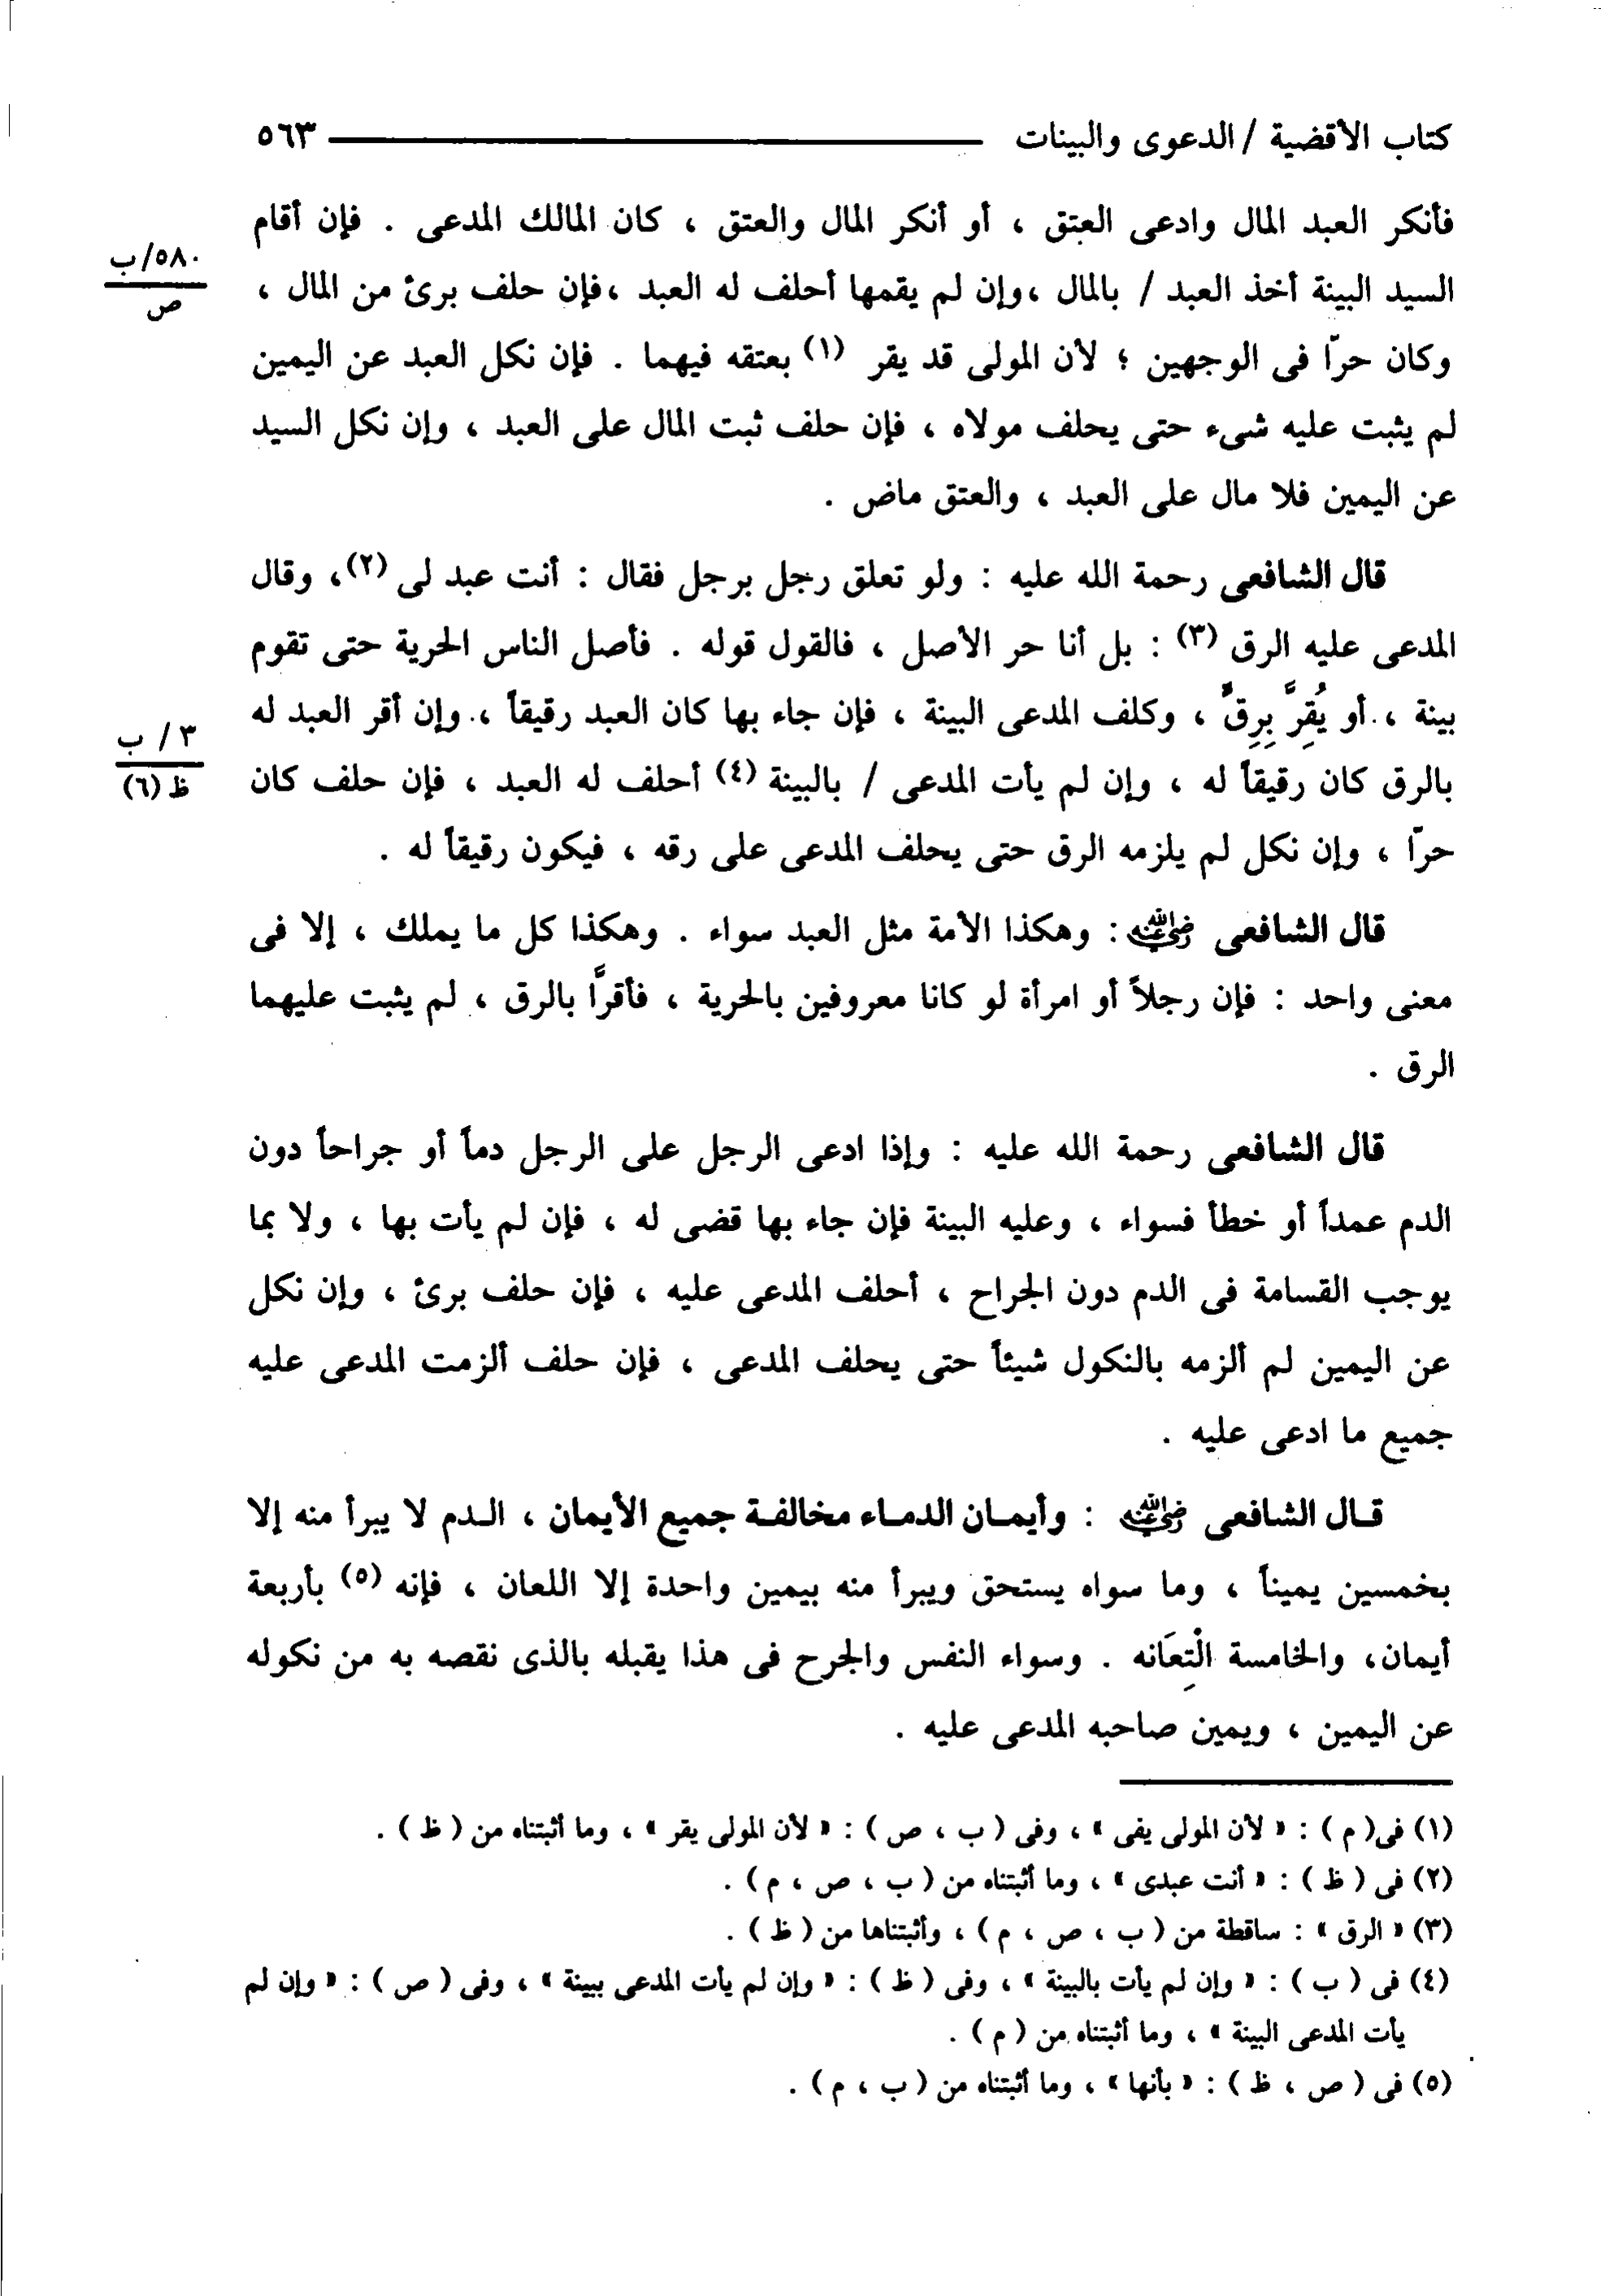 كتاب الأقضية / الدعوى والبينات ــــــــــــــــــــ ٥٦٣
فأنكر العبد المال وادعى العتق ، أو أنكر المال والعتق ، كان المالك المدعى . فإن أقام
٥٨٠/ب
ص
السيد البينة أخذ العبد / بالمال ،وإن لم يقمها أحلف له العبد ،فإن حلف برئ من المال ،
وكان حرّا فى الوجهين ؛ لأن المولى قد يقر (١) بعتقه فيهما . فإن نكل العبد عن اليمين
لم يثبت عليه شىء حتى يحلف مولاه ، فإن حلف ثبت المال على العبد ، وإن نكل السيد
عن اليمين فلا مال على العبد ، والعتق ماض .
قال الشافعى رحمة الله عليه : ولو تعلق رجل برجل فقال : أنت عبد لى (٢)، وقال
المدعى عليه الرق (٣) : بل أنا حر الأصل ، فالقول قوله . فأصل الناس الحرية حتى تقوم
بينة ، أو يُقِرَّ بِرِقٍّ ، وكلف المدعى البينة ، فإن جاء بها كان العبد رقيقاً ، وإن أقر العبد له
٣ / ب
ظ (٦)
بالرق كان رقيقاً له ، وإن لم يأت المدعى / بالبينة (٤) أحلف له العبد ، فإن حلف كان
حرّا ، وإن نكل لم يلزمه الرق حتى يحلف المدعى على رقه ، فيكون رقيقاً له .
قال الشافعى رضي الله عنه : وهكذا الأمة مثل العبد سواء . وهكذا كل ما يملك ، إلا فى
معنى واحد : فإن رجلاً أو امرأة لو كانا معروفين بالحرية ، فأقرَّا بالرق ، لم يثبت عليهما
الرق .
قال الشافعى رحمة الله عليه : وإذا ادعى الرجل على الرجل دماً أو جراحاً دون
الدم عمداً أو خطأ فسواء ، وعليه البينة فإن جاء بها قضى له ، فإن لم يأت بها ، ولا بما
يوجب القسامة فى الدم دون الجراح ، أحلف المدعى عليه ، فإن حلف برئ ، وإن نكل
عن اليمين لم ألزمه بالنكول شيئاً حتى يحلف المدعى ، فإن حلف ألزمت المدعى عليه
جميع ما ادعى عليه .
قـال الشافعى رضي الله عنه : وأيمـان الدمـاء مخالفـة جميع الأيمان ، الـدم لا يبرأ منه إلا
بخمسين يميناً ، وما سواه يستحق ويبرأ منه بيمين واحدة إلا اللعان ، فإنه (٥) بأربعة
أيمان، والخامسة الْتِعَانه . وسواء النفس والجرح فى هذا يقبله بالذى نقصه به من نكوله
عن اليمين ، ويمين صاحبه المدعى عليه .
(١) فى( م ) : « لأن المولى يفى » ، وفى ( ب ، ص ) : « لأن المولى يقر » ، وما أثبتناه من ( ظ ) .
(٢) فى ( ظ ) : « أنت عبدى » ، وما أثبتناه من ( ب ، ص ، م ) .
(٣) « الرق » : ساقطة من ( ب ، ص ، م ) ، وأثبتناها من ( ظ ) .
(٤) فى ( ب ) : « وإن لم يأت بالبينة » ، وفى ( ظ ) : « وإن لم يأت المدعى ببينة » ، وفى ( ص ) : « وإن لم
يأت المدعى البينة » ، وما أثبتناه من ( م ) .
(٥) فى ( ص ، ظ ) : « بأنها » ، وما أثبتناه من ( ب ، م ) .